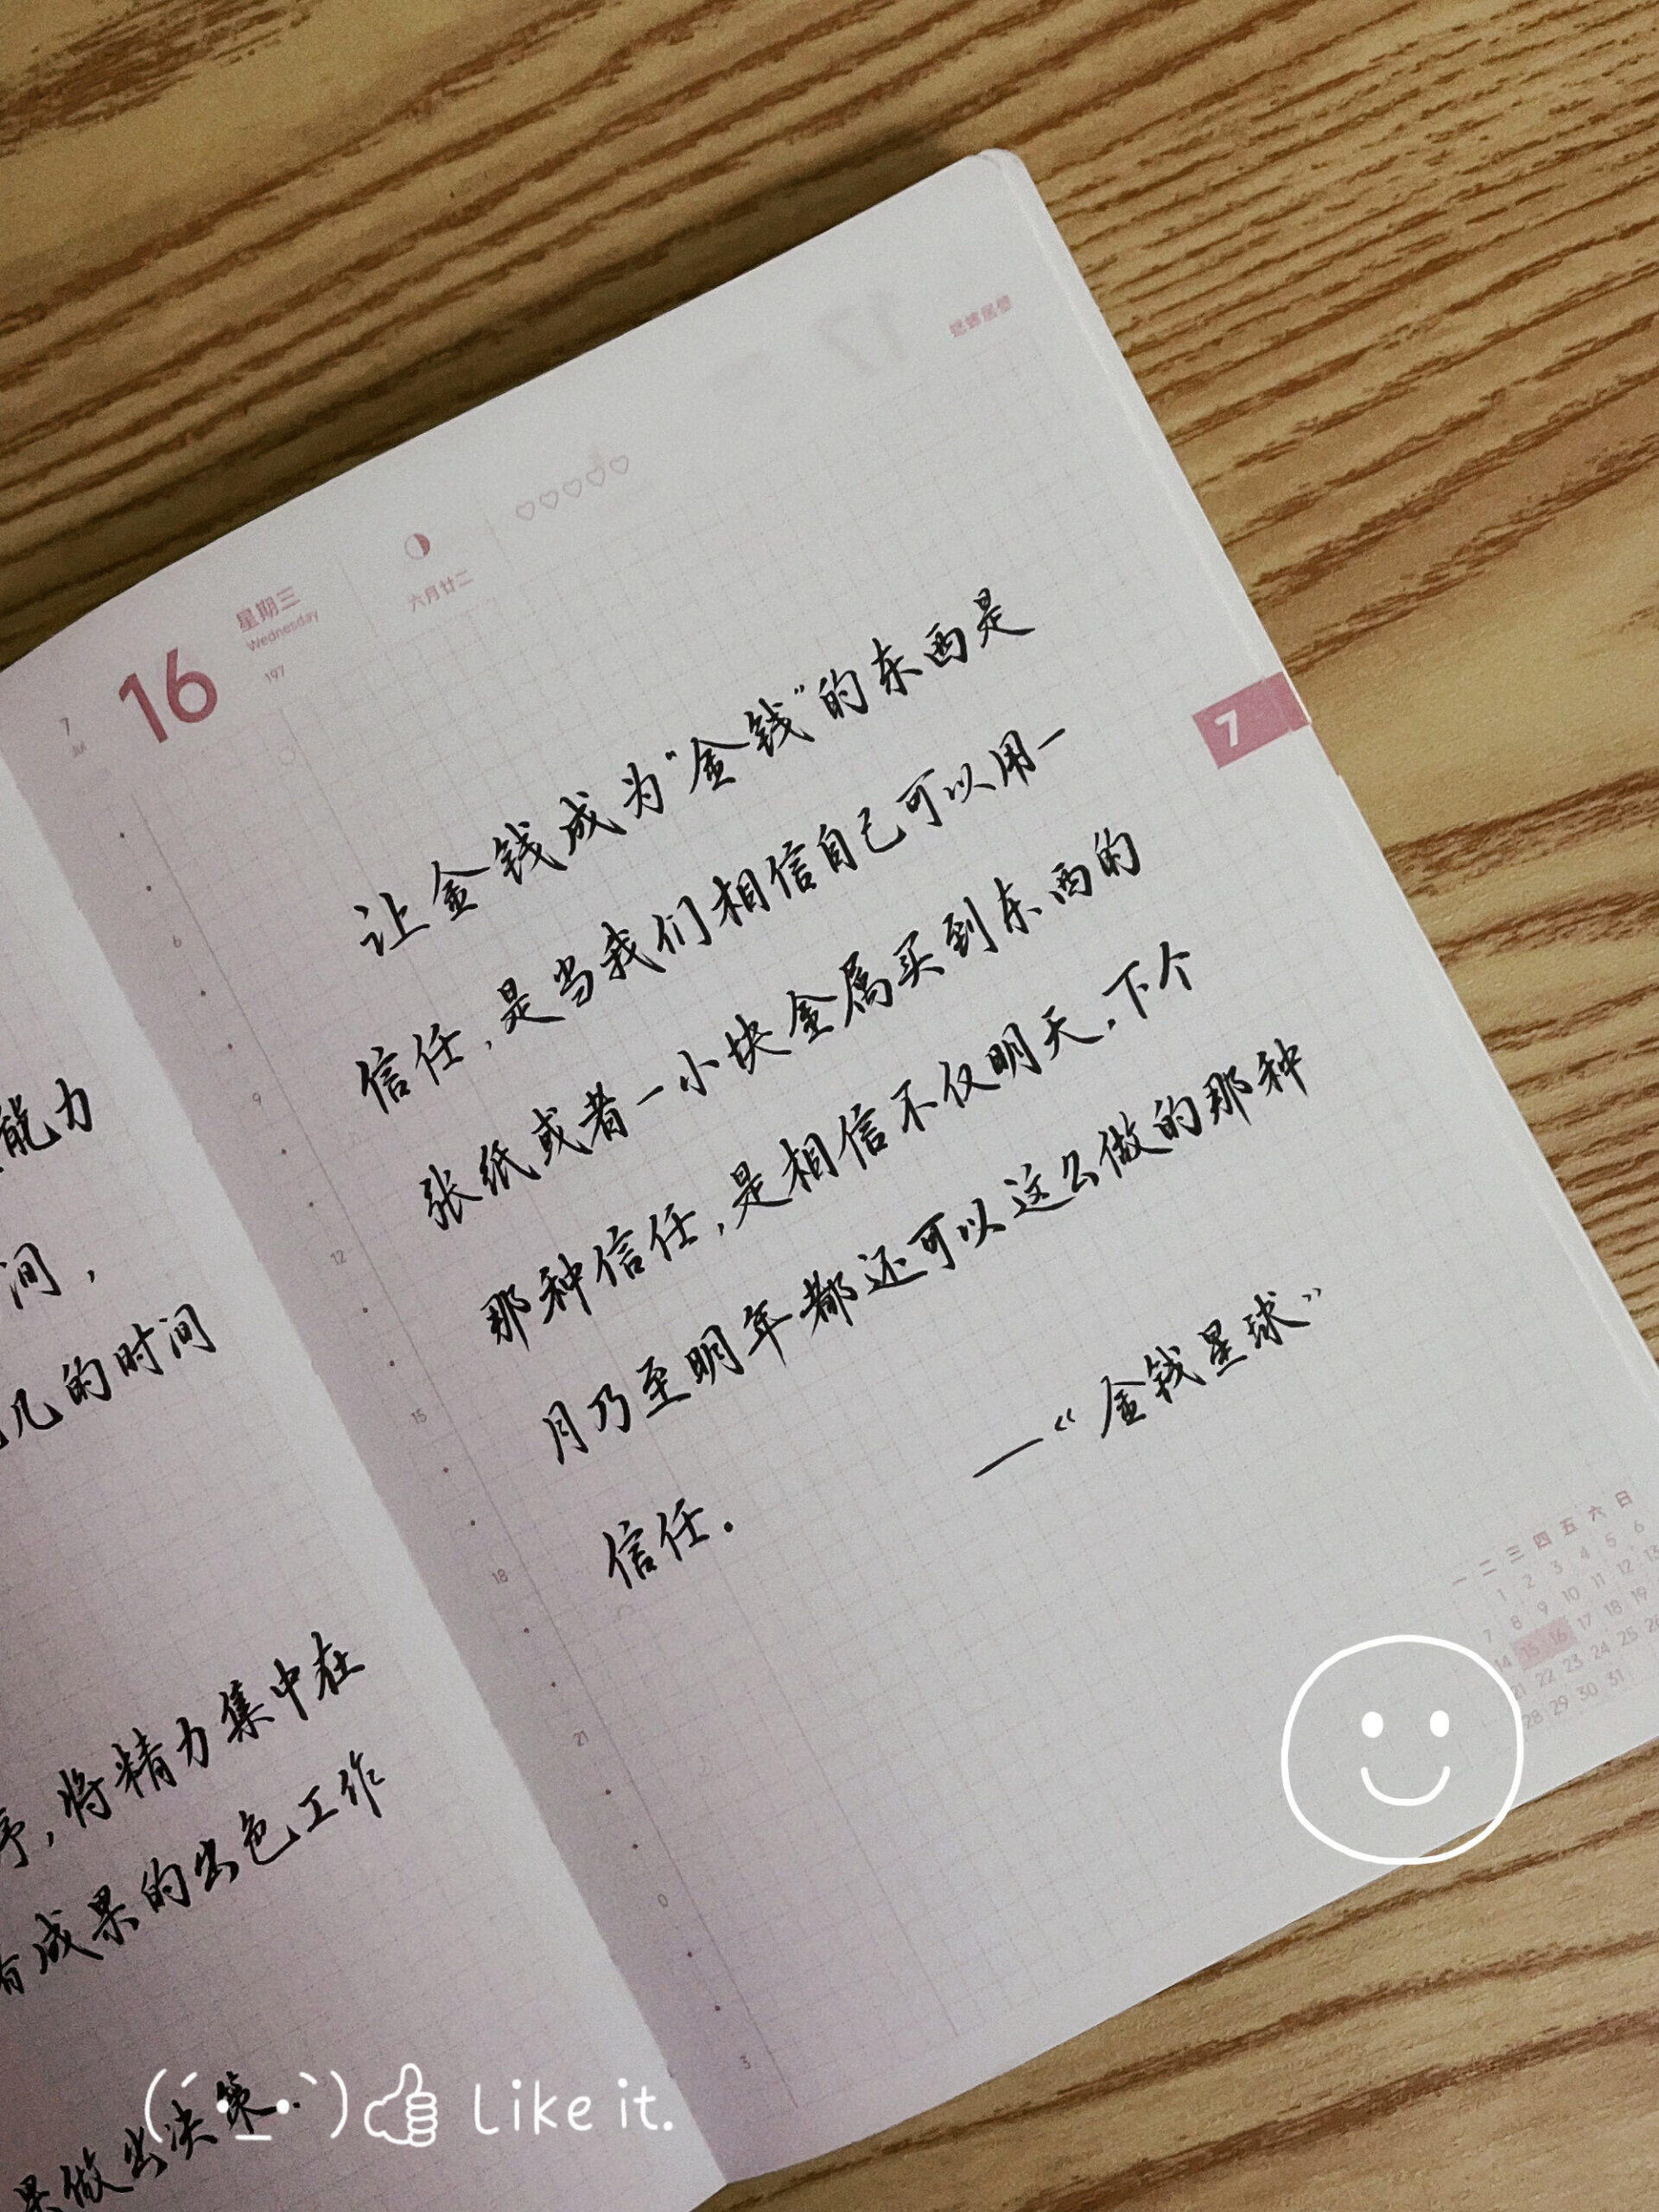 能力
间，
几的时间
将精力集中在
有成果的出色工作
果做出决策.
7
Jul
16
星期三
Wednesday
197
六月廿二
趁蜉居僧
让金钱成为“金钱”的东西是
信任,是当我们相信自己可以用一
张纸或者一小块金属买到东西的
那种信任,是相信不仅明天.下个
月乃至明年都还可以这么做的那种
信任.
—《金钱星球》
7
6
9
12
15
18
21
0
3
一 二 三 四 五 六 日
1 2 3 4 5 6
7 8 9 10 11 12 13
14 15 16 17 18 19
21 22 23 24 25 26
28 29 30 31
Like it.